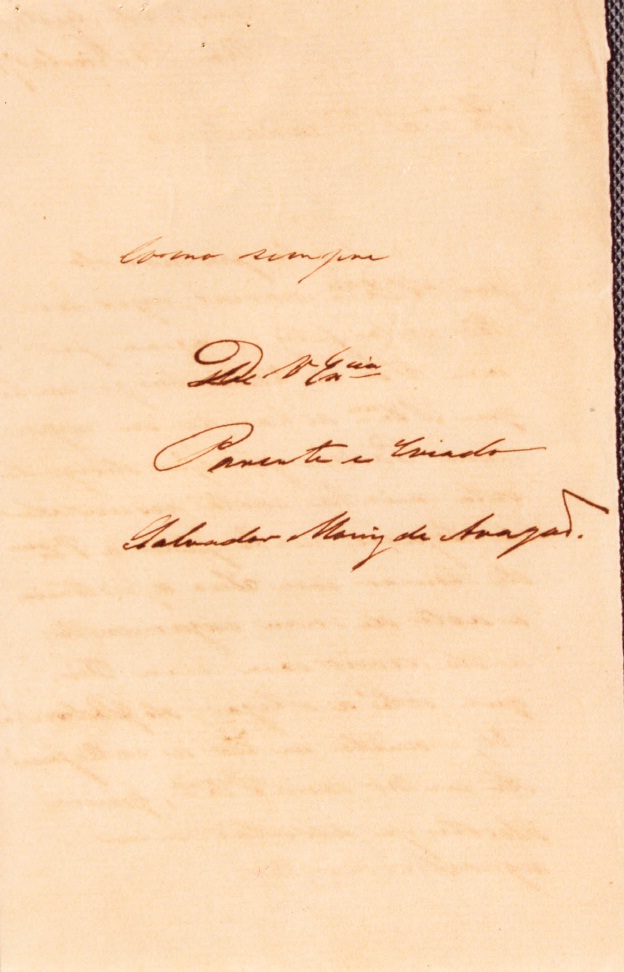 Como sempre
De Vª Excia
Parente e Criado
Salvador Moniz de Aragão.